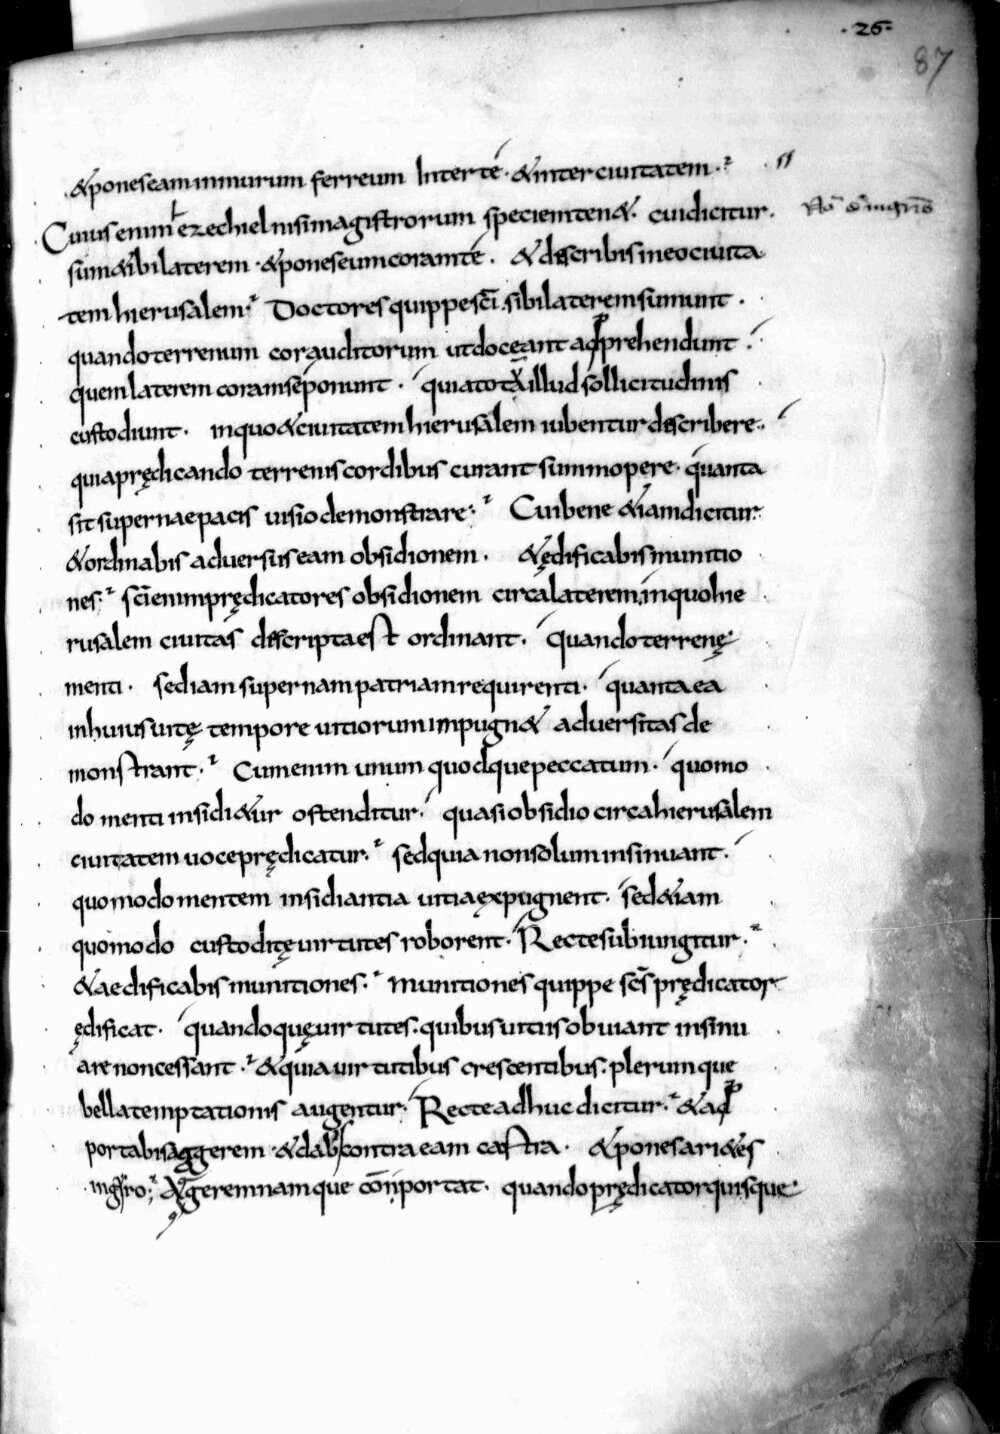 ·26·
87
&poneseam inmurum ferreum Interté· &inter ciuitatem·
Cuius enim ezechiel nisi magistrorum speciem ten&· cui dicitur·
sum&ibi laterem· &poneseum coram te· &describis ineo ciuita
tem hierusalem· Doctores quippe sc̄i sibi laterem sumunt·
quando terrenum cor auditorum ut doceant adprehendunt·
quem laterem coram se ponunt· quia tota illud sollicitudinis
custodiunt· inquo &ciuitatem hierusalem iubentur describere·
quia prędicando terrenis cordibus curant summopere· quanta
sit supernae pacis uisio demonstrare· Cui bene &iam dicitur·
&ordinabis aduersus eam obsidionem· &ędificabis munitio
nes· sc̄i enim prędicatores obsidionem circa laterem, inquo hie
rusalem ciuitas descripta est ordinant· quando terrenę
menti· sed iam supernam patriam requirenti· quanta ea
inhuius uitę tempore uitiorum impugn& aduersitas de
monstrant· Cum enim unum quodque peccatum· quomo
do menti insidi&ur ostenditur· quasi obsidio circa hierusalem
ciuitatem uoce prędicatur· sed quia non solum insinuant·
quomodo mentem insidiantia uitia expugnent· sed &iam
quomodo custoditę uirtutes roborent· Recte subiungitur·
&aedificabis munitiones· munitiones quippe sc̄s prędicator
ędificat· quando quę uirtutes· quibus uitiis obuiant insinu
are non cessant· &quia uirtutibus crescentibus· plerumque
bella temptationis augentur· Recte adhuc dicitur· &ad
portabis aggerem· &dabis contra eam castra· &pones ari&es
ingyro· Aggerem namque cōnportat· quando prędicator quisque·